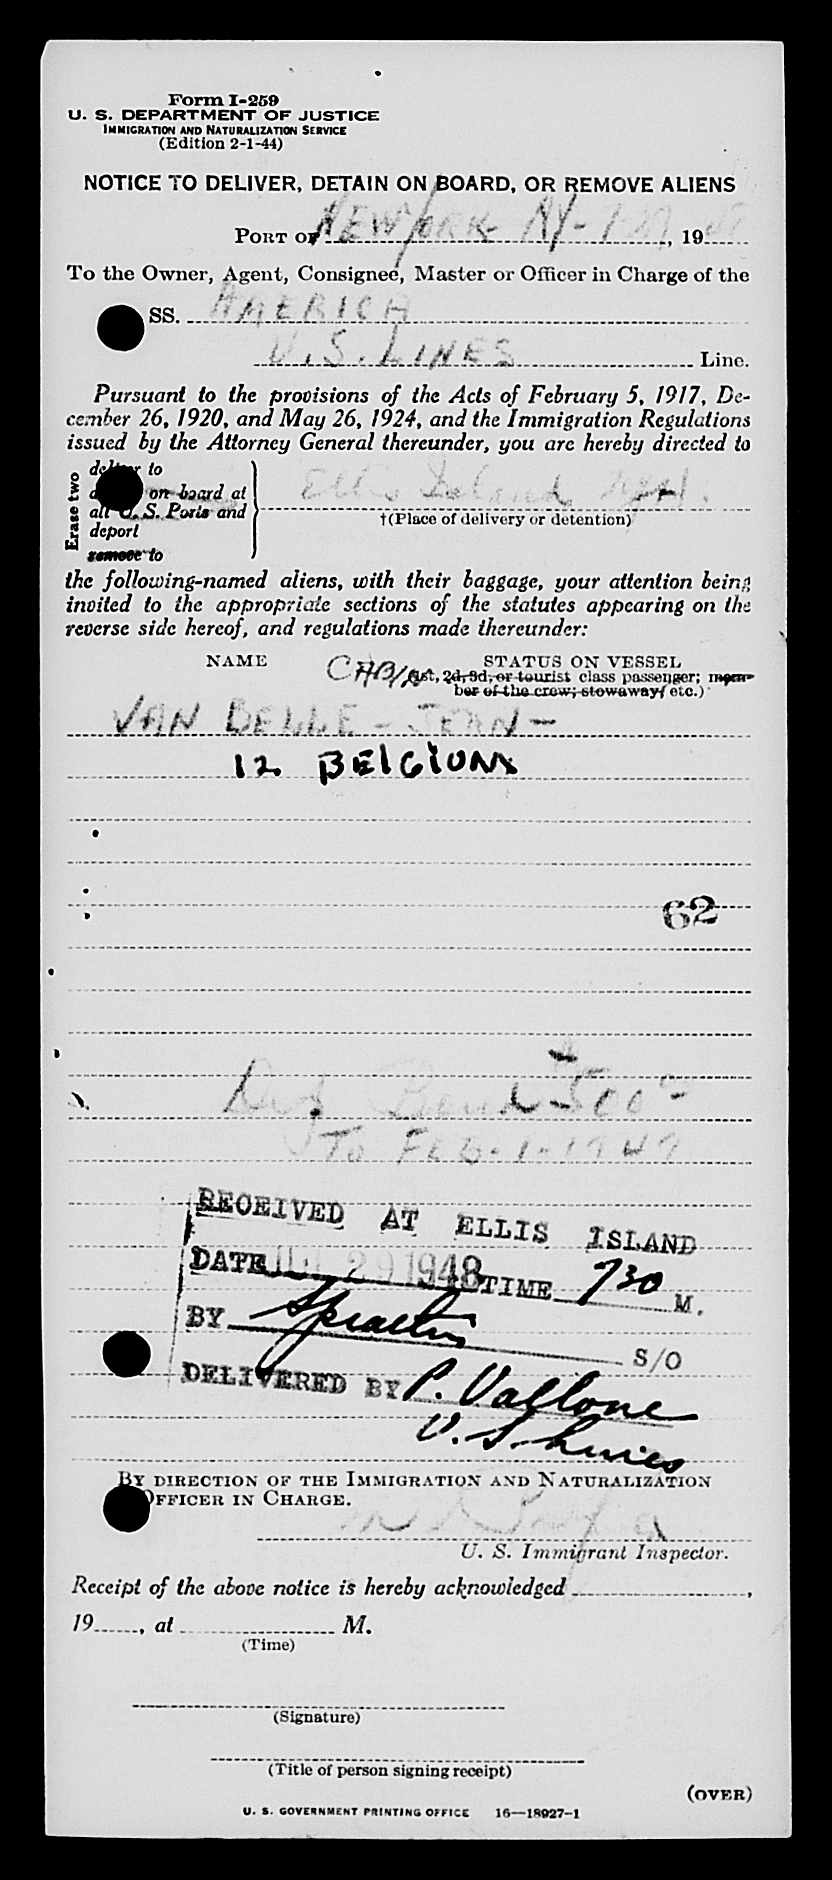 Form I-259
U. S. DEPARTMENT OF JUSTICE
IMMIGRATION AND NATURALIZATION SERVICE
(Edition 2-1-44)
NOTICE TO DELIVER, DETAIN ON BOARD, OR REMOVE ALIENS
PORT OF NEW YORK NY-7-29, 19
To the Owner, Agent, Consignee, Master or Officer in Charge of the
SS. AMERICA
U.S. LINES Line.
Pursuant to the provisions of the Acts of February 5, 1917, De-
cember 26, 1920, and May 26, 1924, and the Immigration Regulations
issued by the Attorney General thereunder, you are hereby directed to
Erase two
deliver to
on board at
all U. S. Ports and
deport
remove to
Ellis Island N.Y.H.
†(Place of delivery or detention)
the following-named aliens, with their baggage, your attention being
invited to the appropriate sections of the statutes appearing on the
reverse side hereof, and regulations made thereunder:
NAME CABIN STATUS ON VESSEL
1st, 2d, 3d, or tourist class passenger; mem-
ber of the crew; stowaway; etc.)
VAN BELLE - JEAN -
12 BELGIUM
62
Bond 500
To FEB-1-1949
RECEIVED AT ELLIS ISLAND
DATE JUL 29 1948 TIME 730 M.
BY S/O
DELIVERED BY P. Vallone
U. S. Lines
BY DIRECTION OF THE IMMIGRATION AND NATURALIZATION
OFFICER IN CHARGE.
U. S. Immigrant Inspector.
Receipt of the above notice is hereby acknowledged ,
19 , at M.
(Time)
(Signature)
(Title of person signing receipt)
(OVER)
U. S. GOVERNMENT PRINTING OFFICE 16—18927-1